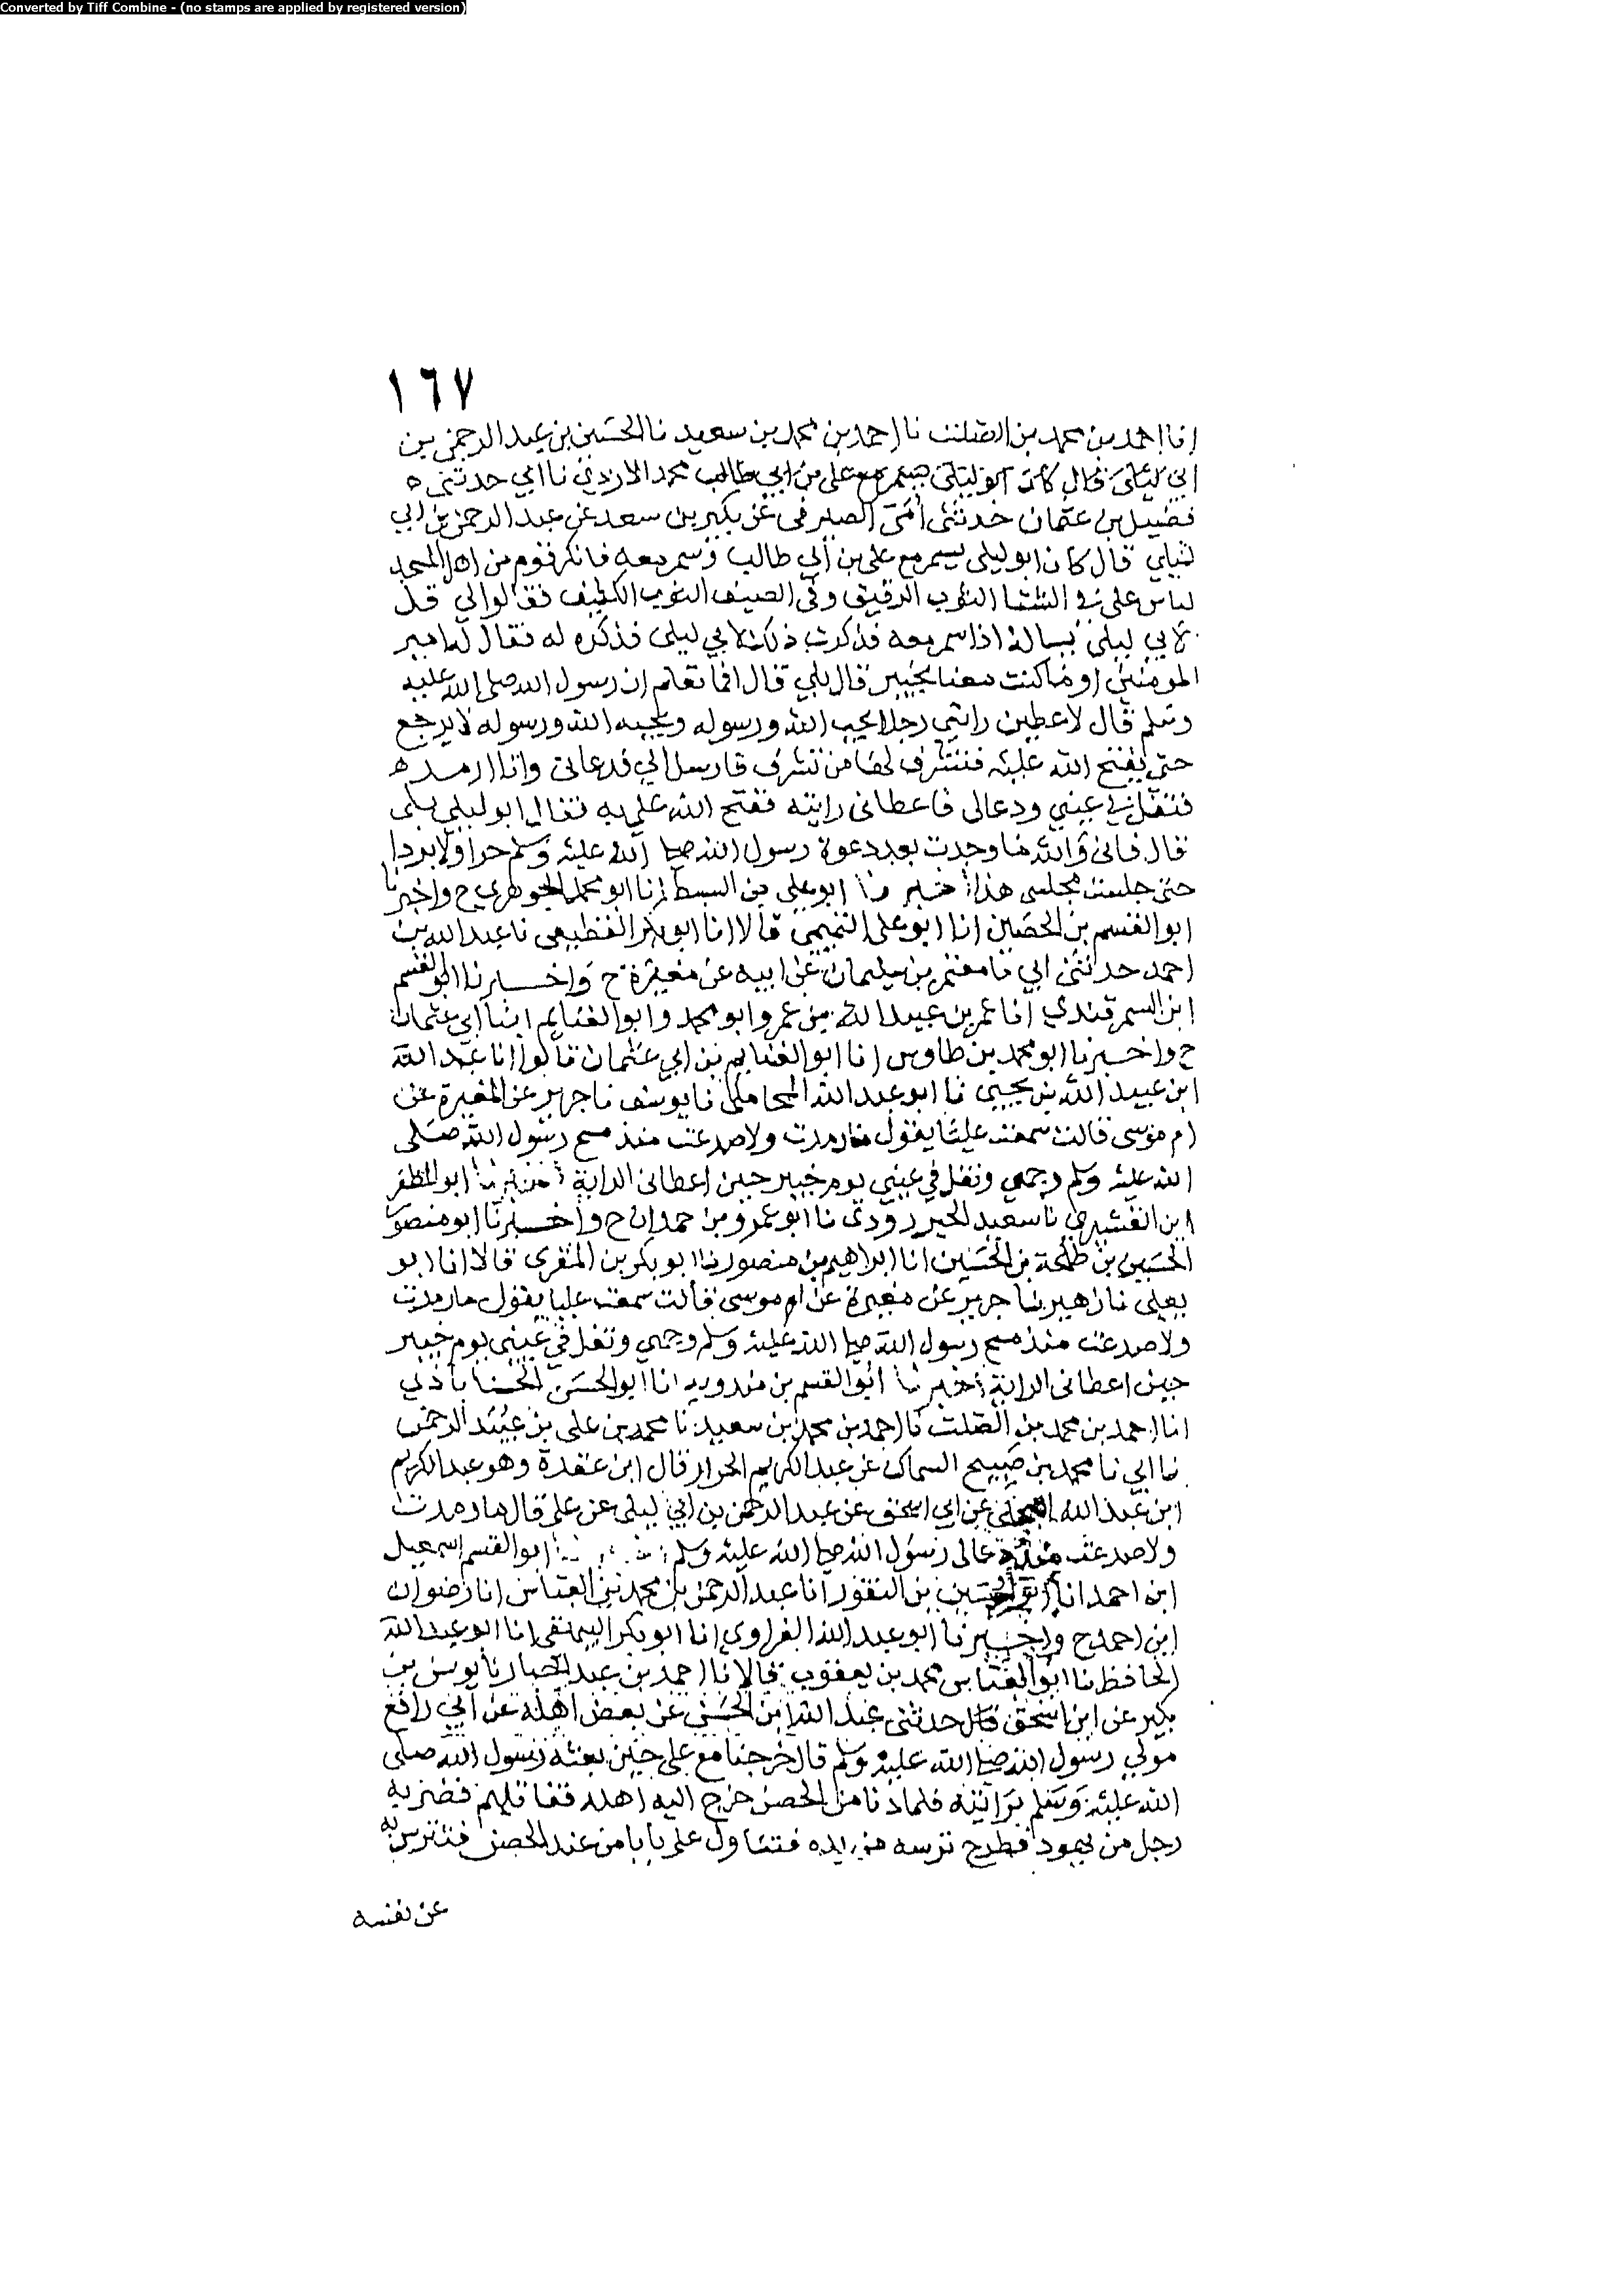 Converted by Tiff Combine - (no stamps are applied by registered version)
١٦٧
انا احمد بن محمد بن الصلت نا احمد بن محمد بن سعيد نا الحسين بن عبد الرحمن بن
ابي ليلى قال كان ابو ليلى يسمر مع على بن ابي طالب محمد الازدي نا ابي حدثني ه
فضيل بن عثمان حدثنى امى الصيرفى عن بكير بن سعد عن عبد الرحمن بن ابي
ليلي قال كان ابو ليلى يسمر مع على بن ابي طالب وسمر معه فانكر قوم من اهل المسجد
لباس على في الشتا الثوب الرقيق وفى الصيف الثوب الكثيف فقالوا لي قل
لابي ليلى يساله اذا سمر معه فذكرت ذلك لابي ليلى فذكره له فقال له امير
المومنين اوما كنت معنا بخيبر قال بلي قال افما تعلم ان رسول الله صلى الله عليه
وسلم قال لاعطين رايتي رجلا يحب الله ورسوله ويحبه الله ورسوله لا يرجع
حتى يفتح الله عليه فتشرف لها من تشرف فارسل الي فدعانى وانا ارمد ه
فتفل في عيني ودعا لى فاعطانى رايته ففتح الله علي به فقال ابو ليلي بلى
قال فانى والله ما وجدت بعد دعوة رسول الله صلى الله عليه وسلم حرا ولا بردا
حتى جلست مجلسى هذا اخبرنا ابو على بن السبط انا ابو محمد الجوهري ح واخبرنا
ابو القسم بن الحصين انا ابو على التميمى قالا انا ابو بكر القطيعى نا عبد الله بن
احمد حدثنى ابي نا معتمر بن سليمان عن ابيه عن مغيرة ح واخبرنا ابو القسم
ابن السمرقندي انا عمر بن عبيد الله بن عمر وابو محمد وابو الغنايم ابنا ابي عثمان
ح واخبرنا ابو محمد بن طاوس انا ابو الغنايم بن ابي عثمان قالوا انا عبد الله
ابن عبيد الله بن يحيى نا ابو عبد الله المحاملى نا يوسف نا جرير عن المغيرة عن
ام موسى قالت سمعت عليا يقول ما رمدت ولا صدعت منذ مسح رسول الله صلى
الله عليه وسلم وجهي وتفل في عيني يوم خيبر حين اعطانى الراية اخبرنا ابو المظفر
ابن القشيري نا سعيد الحيرزودى نا ابو عمرو بن حمدان ح واخبرنا ابو منصور
الحسين بن طلحة بن الحسين انا ابراهيم بن منصور نا ابو بكر بن المقرى قالا انا ابو
يعلى نا زهير نا جرير عن مغيرة عن ام موسى قالت سمعت عليا يقول ما رمدت
ولا صدعت منذ مسح رسول الله صلى الله عليه وسلم وجهي وتفل في عيني يوم خيبر
حين اعطانى الراية اخبرنا ابو القسم بن مندويه انا ابو الحسن الحسناباذي
انا احمد بن محمد بن الصلت نا احمد بن محمد بن سعيد نا محمد بن على بن عبيد الرحمن
نا ابي نا محمد بن صبيح السماك عن عبد الكريم الحرار قال ابن عقدة وهو عبد الكريم
ابن عبد الله البجلى عن ابي اسحق عن عبد الرحمن بن ابي ليلى عن على قال ما رمدت
ولا صدعت منذ دعا لى رسول الله صلى الله عليه وسلم ابو القسم اسمعيل
ابن احمد انا ابو الحسين بن النقور انا عبد الرحمن بن محمد بن العباس انا رضوان
ابن احمد ح واخبرنا ابو عبد الله الفراوي انا ابو بكر البيهقى انا ابو عبد الله
الحافظ نا ابو العباس محمد بن يعقوب قالا نا احمد بن عبد الجبار نا يونس بن
بكير عن ابن اسحق قال حدثنى عبد الله بن الحسن عن بعض اهله عن ابي رافع
مولي رسول الله صلى الله عليه وسلم قال خرجنا مع على حين بعثه رسول الله صلى
الله عليه وسلم برايته فلما دنا من الحصن خرج اليه اهله فقاتلهم فضربه
رجل من يهود فطرح ترسه من يده فتناول على بابا من عند الحصن فتترس به
عن نفسه